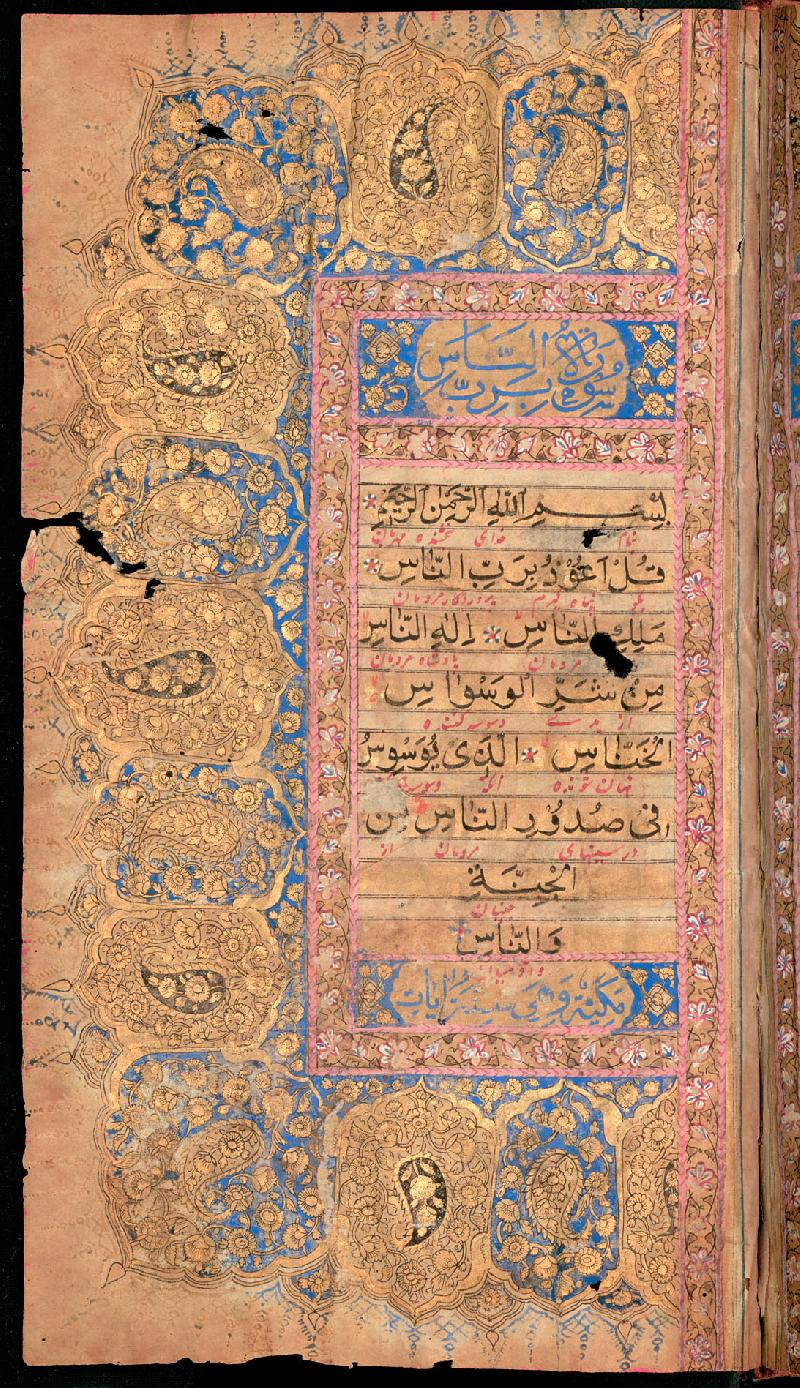 سُورَةُ بِرَبِّ النَّاسِ
بِسْمِ اللهِ الرَّحْمٰنِ الرَّحِيْمِ
بنام خدای بخشنده مهربان
قُلْ اَعُوْذُ بِرَبِّ النَّاسِ
پناه مردمان
مَلِكِ النَّاسِ اِلٰهِ النَّاسِ
مردمان پادشاه مردمان
مِنْ شَرِّ الْوَسْوَاسِ
از بدی وسوسه کننده
الْخَنَّاسِ الَّذِى يُوَسْوِسُ
نهان شونده آنکه
فِى صُدُوْرِ النَّاسِ مِنَ
در سینهای مردمان از
الْجِنَّةِ
جنیان
وَالنَّاسِ
وآدمیان
مكية وهى ست ايات